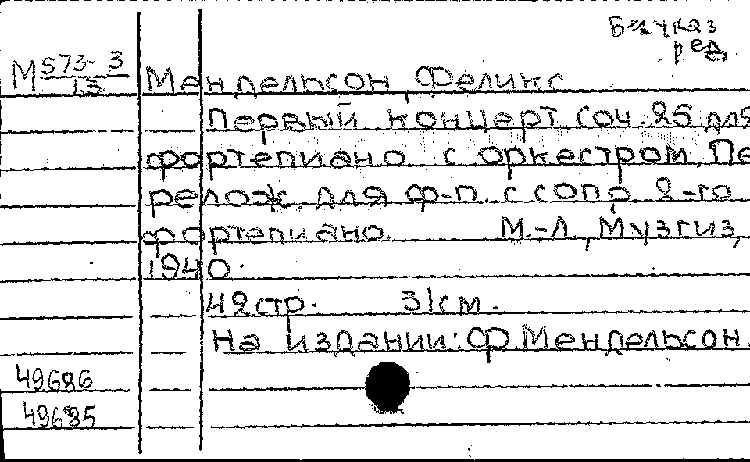 Без указ
ред.
М 573-3
13
Мендельсон, Феликс
Первый концерт соч. 25 для
фортепиано с оркестром. Пе
релож. для ф-п. с сопр. 2-го
фортепиано. М.-Л., Музгиз,
1940.
42 стр. 31 см.
На издании: Ф Мендельсон.
49686
49685